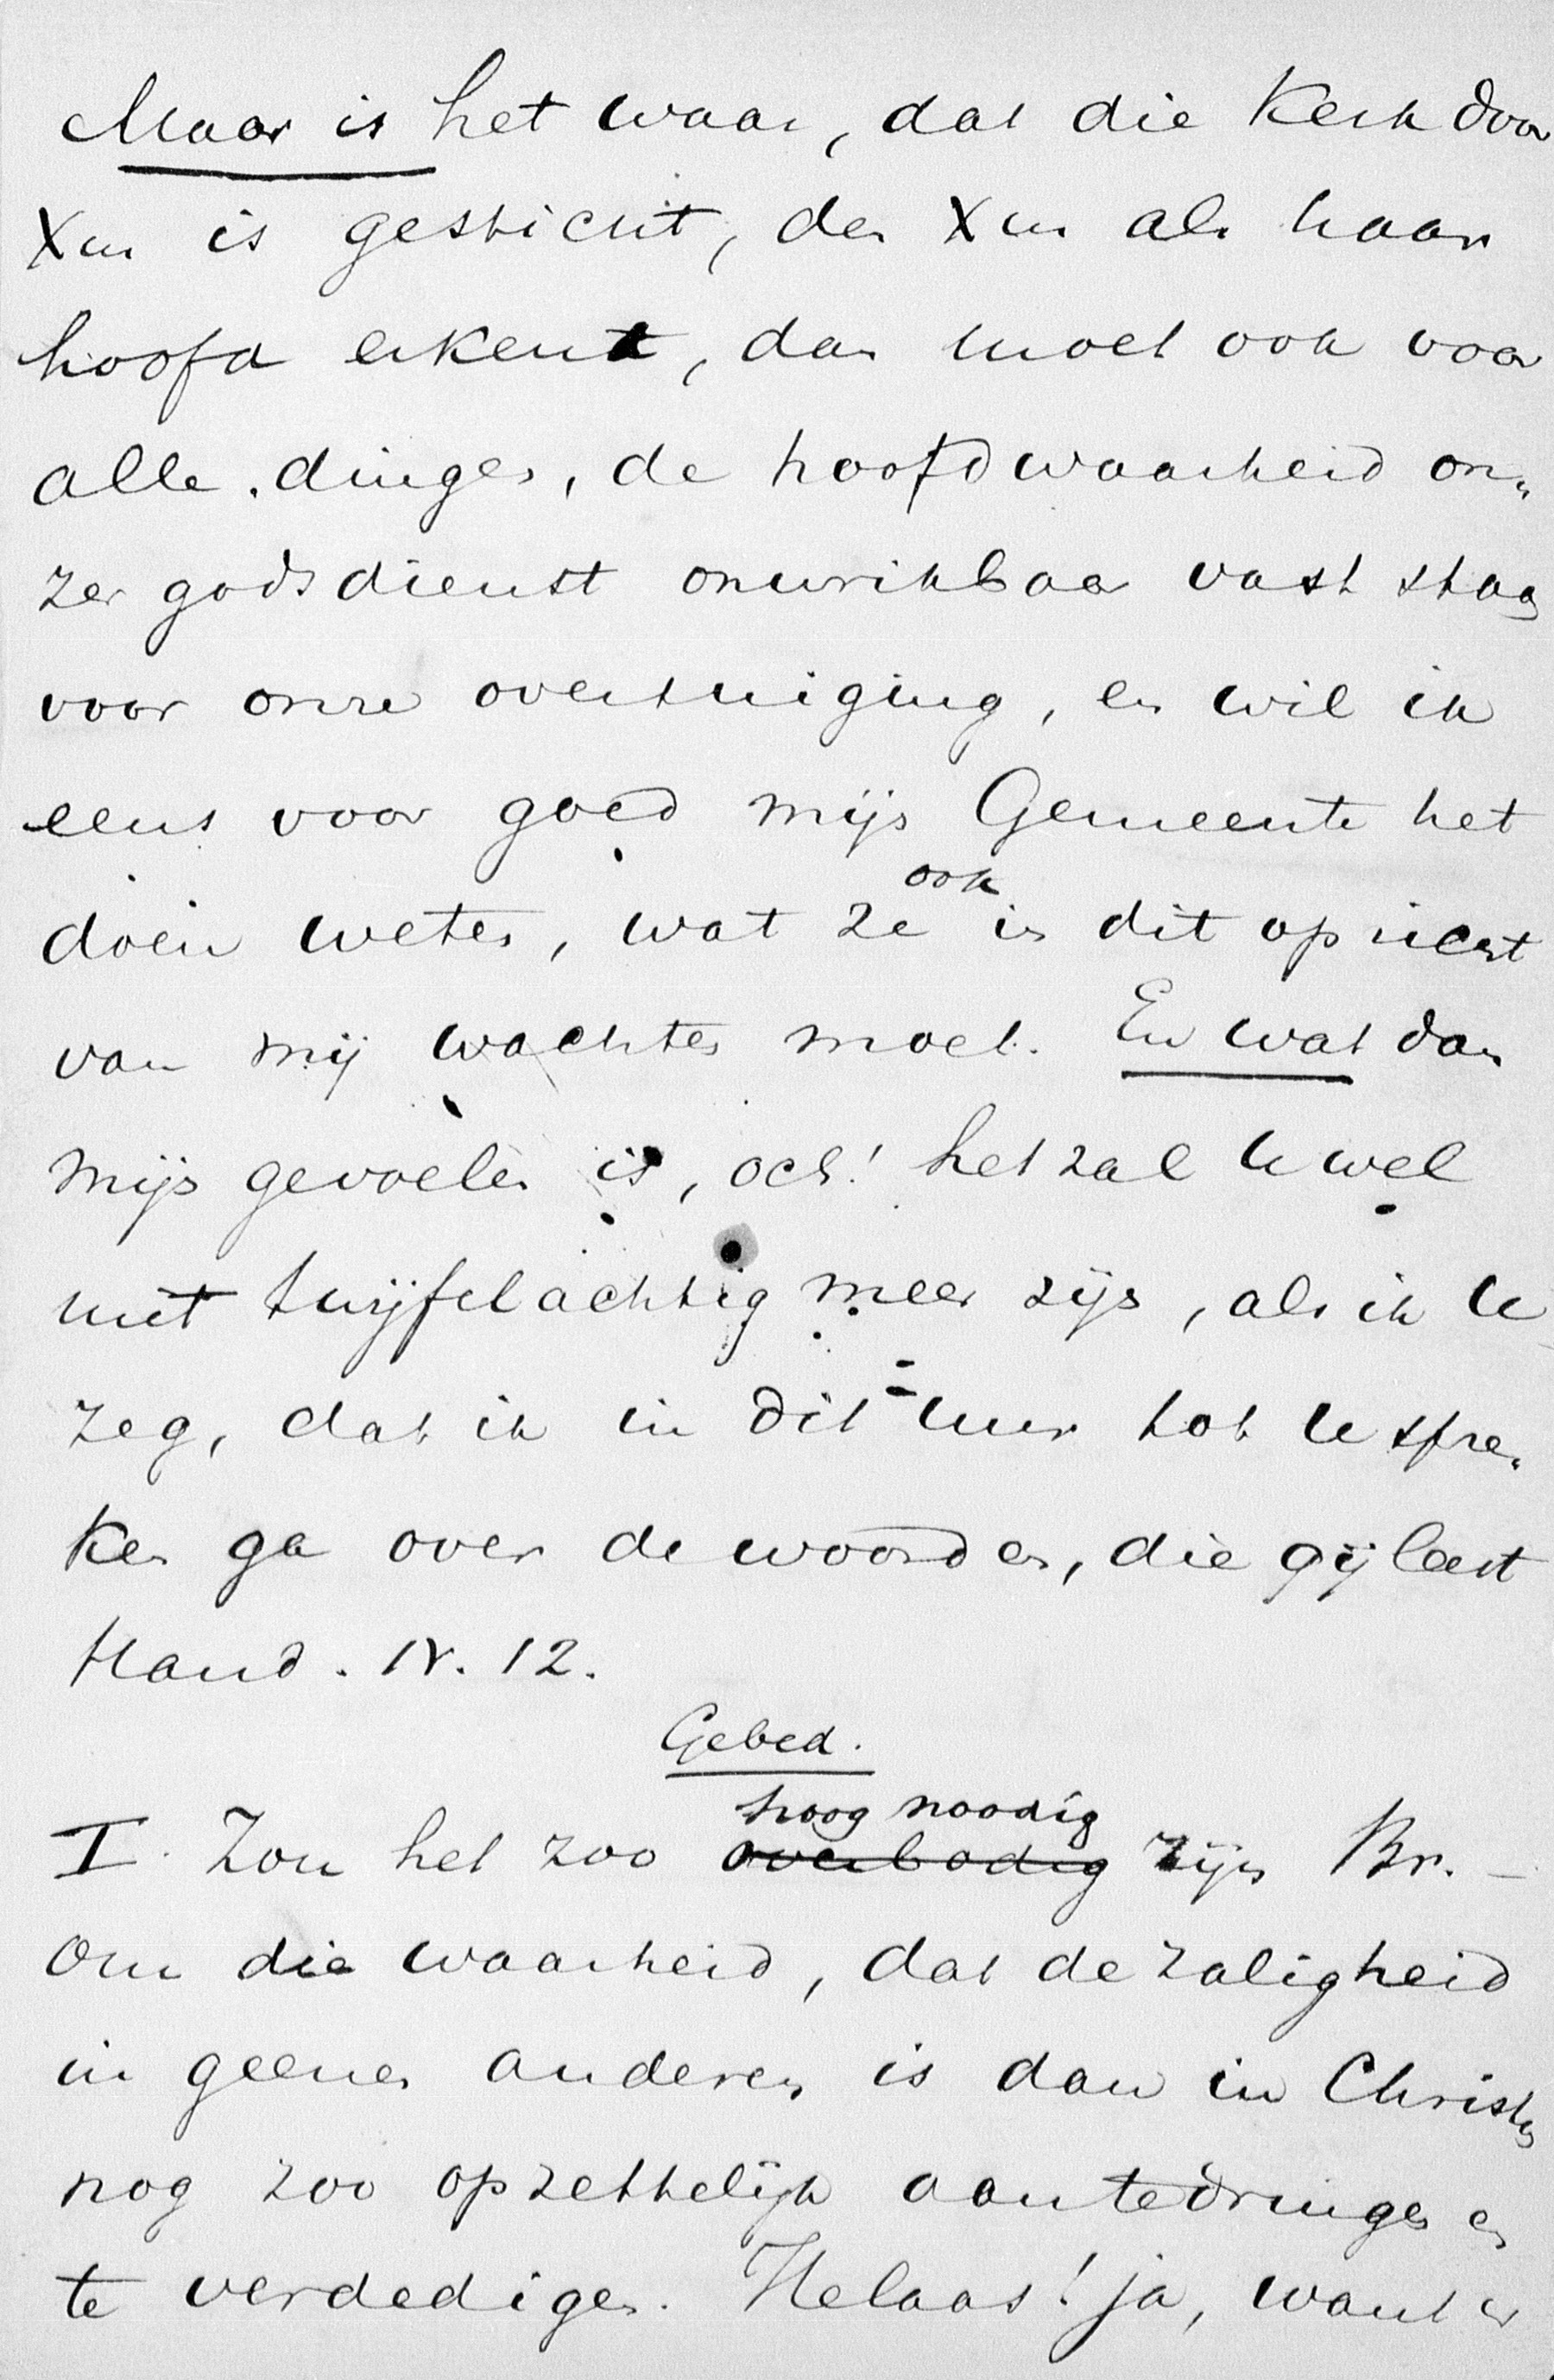 Maar is het waar, dat die Kerk door
Xm is gesticht, den Xm als haar
hoofd erkent, dan moet ook voor
alle dingen, de hoofdwaarheid on„
zer godsdienst onwrikbaar vast staan
voor onze overtuiging, en wil ik
eens voor goed mijn Gemeente het
doen weten, wat ze ook in dit opzicht
van mij wachten moet. En wat dan
mijn gevoelen is, och! het zal U wel
niet twijfelachtig meer zijn, als ik U
zeg, dat ik in dit uur tot U spre„
ken ga over de woorden, die gij leest
Hand. IV. 12.
Gebed.
hoog noodig
I. Zou het zoo overbodig zijn Br. –
Om die waarheid, dat de zaligheid
in geenen anderen is dan in Christus
nog zoo opzettelijk aantedringen en
te verdedigen. Helaas! ja, want er